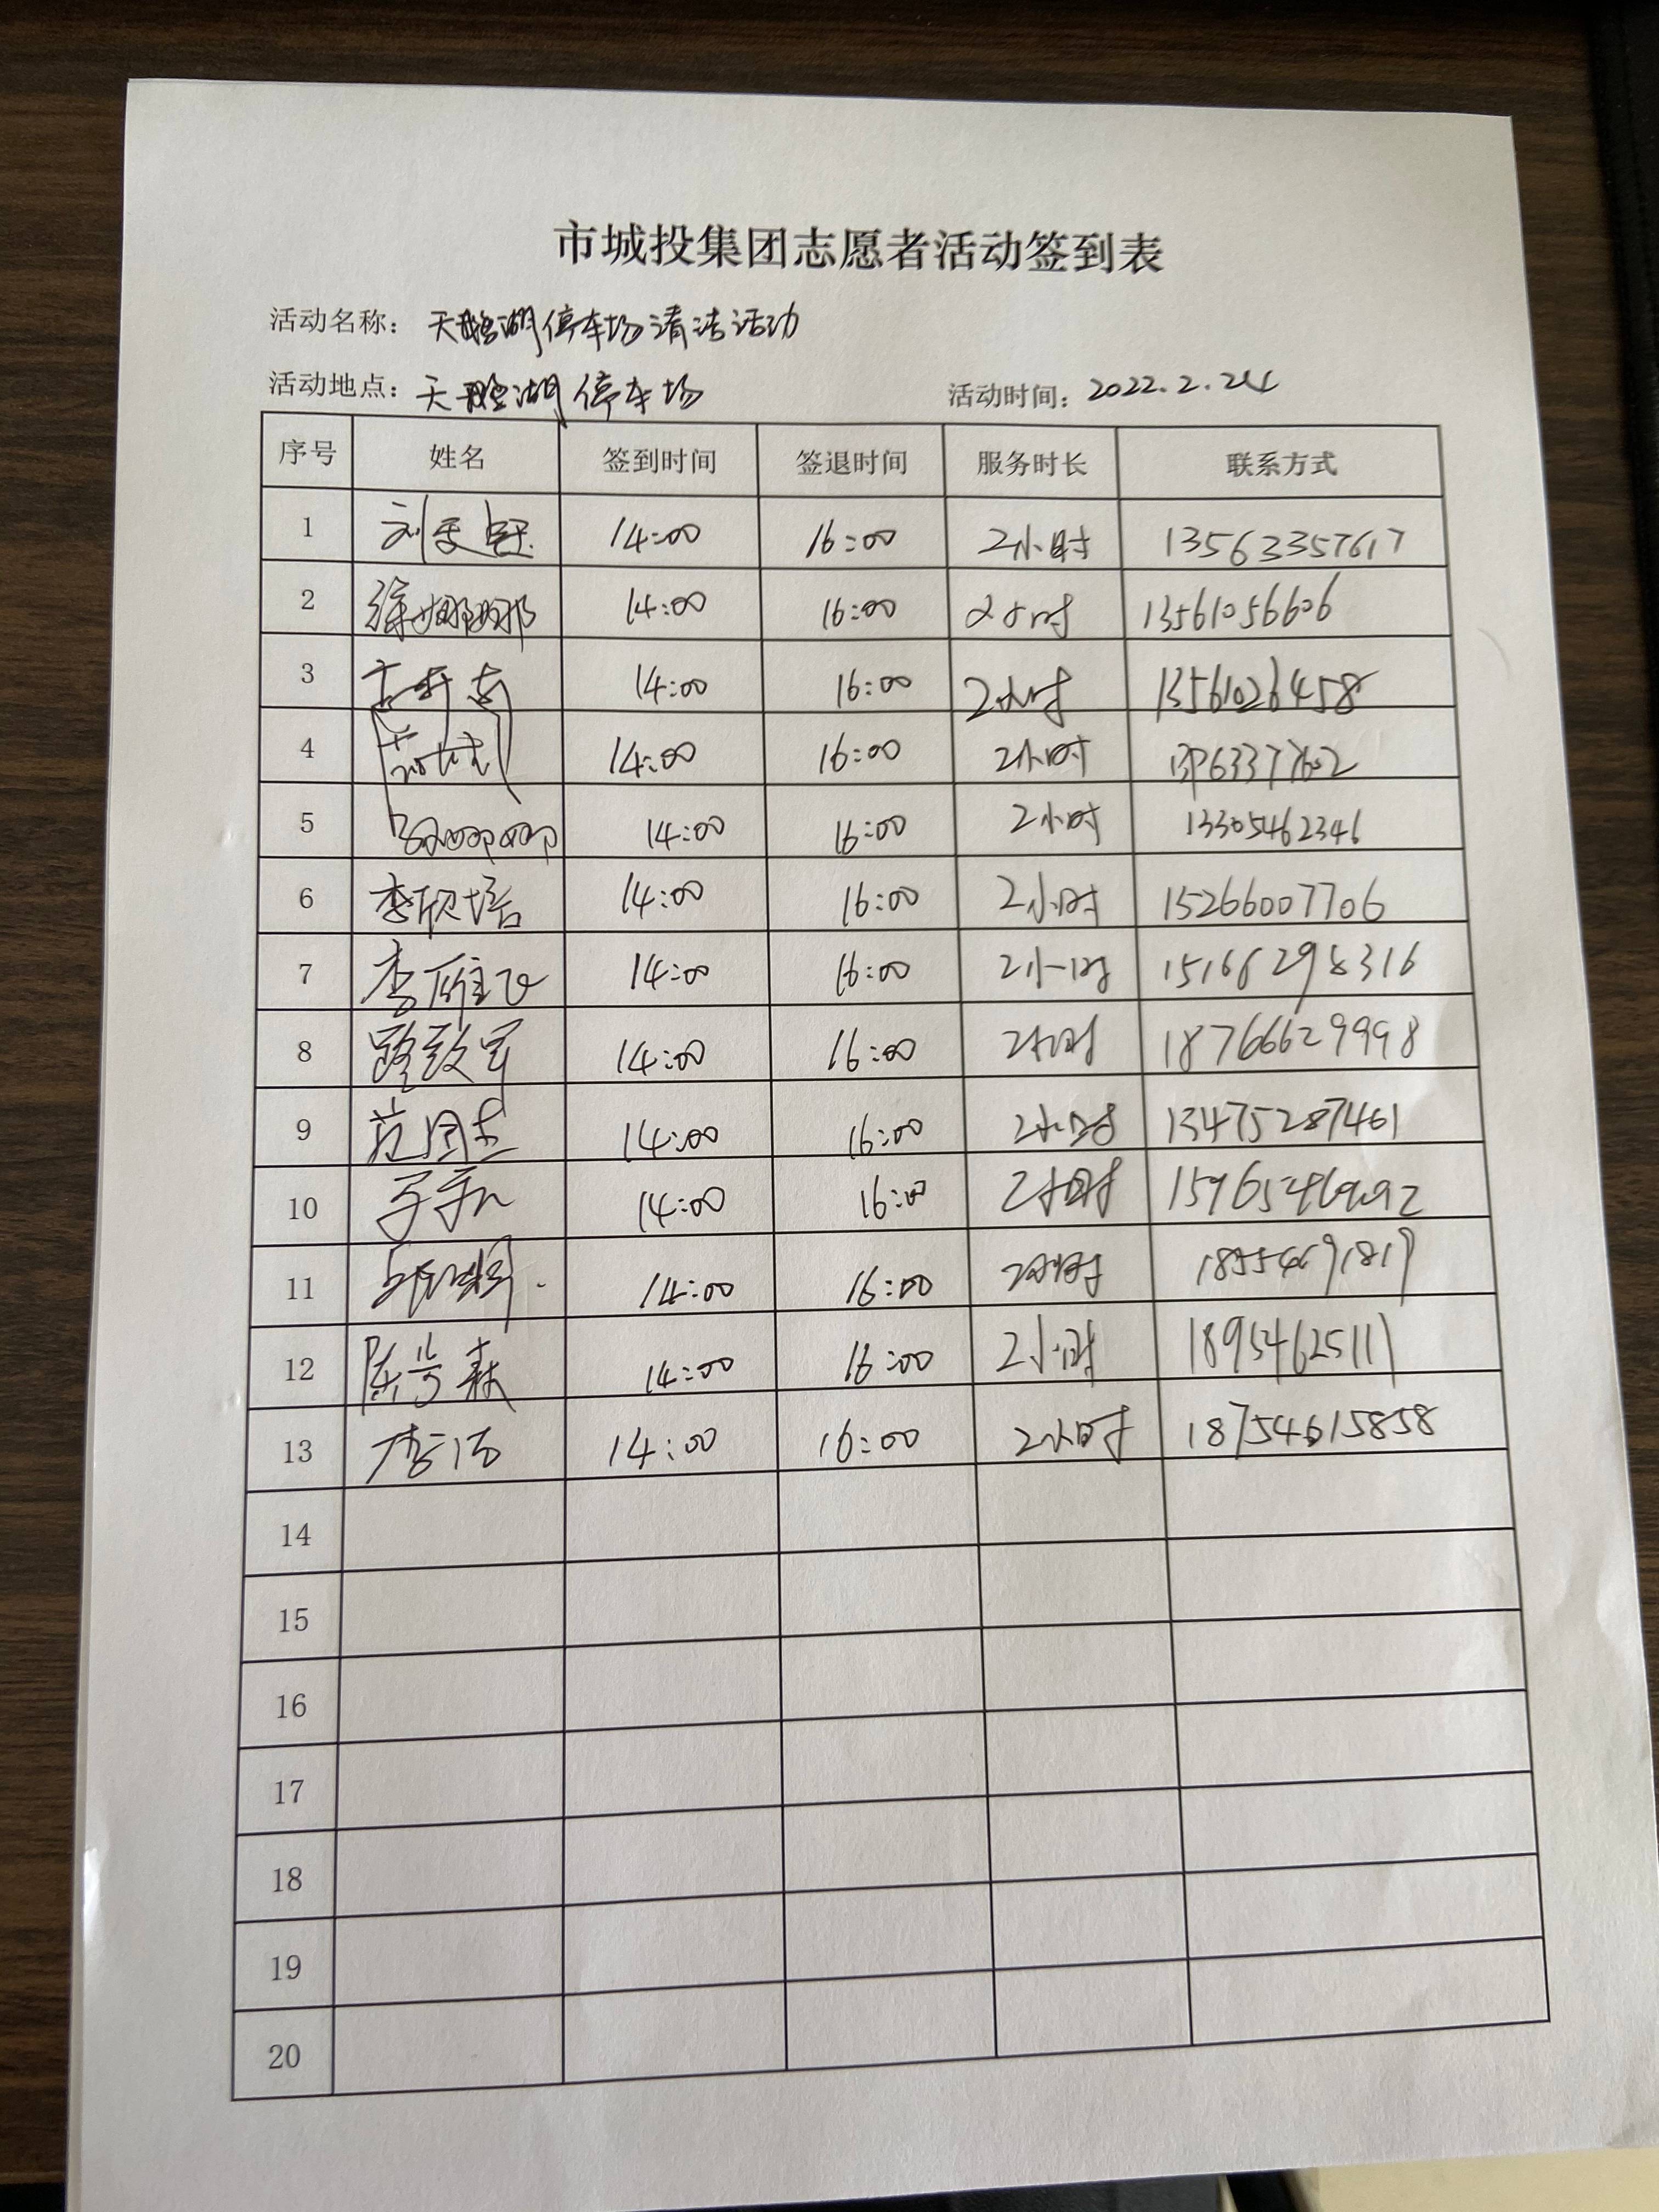 市城投集团志愿者活动签到表
活动名称: 天鹅湖停车场清洁活动
活动地点: 天鹅湖停车场 活动时间: 2022.2.24
序号 姓名 签到时间 签退时间 服务时长 联系方式
1 14:00 16:00 2小时 13563357617
2 徐娜娜 14:00 16:00 2小时 13561056606
3 14:00 16:00 2小时 13561026458
4 14:00 16:00 2小时
5 14:00 16:00 2小时 13305462346
6 李欣培 14:00 16:00 2小时 15266007706
7 李雅飞 14:00 16:00 2小时 15166298316
8 路致军 14:00 16:00 2小时 18766629998
9 范国杰 14:00 16:00 2小时 13475287461
10 14:00 16:00 2小时
11 14:00 16:00 2小时 18554691819
12 陈前森 14:00 16:00 2小时 18954625111
13 李洁 14:00 16:00 2小时 18754615858
14
15
16
17
18
19
20